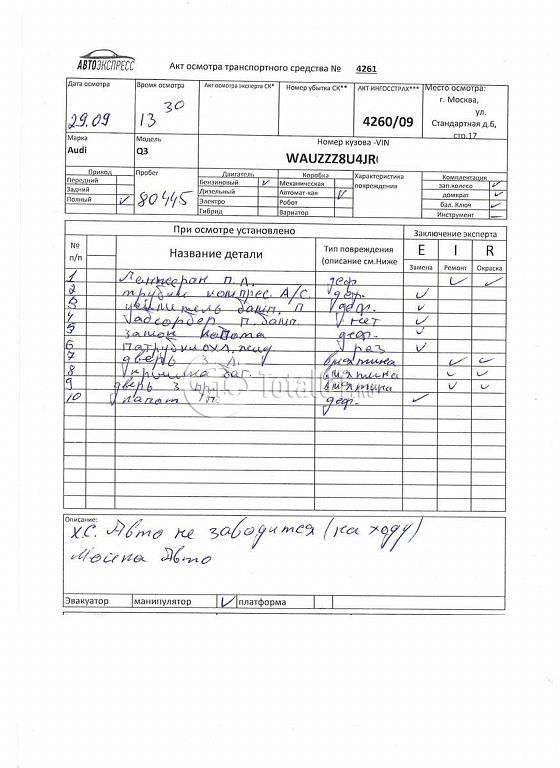 АВТОЭКСПРЕСС
Акт осмотра транспортного средства № 4261
Дата осмотра Время осмотра Акт осмотра эксперта СК* Номер убытка СК** АКТ ИНГОССТРАХ*** Место осмотра:
29.09 13 30 4260/09 г. Москва,
ул.
Стандартная д.6,
стр.17
Марка Модель Номер кузова -VIN
Audi Q3 WAUZZZ8U4JR
Привод Пробег Двигатель Коробка Характеристика повреждения Комплектация
Передний Бензиновый ✓ Механическая зап.колесо ✓
Задний Дизельный Автомат-как ✓ домкрат ✓
Полный ✓ 80445 Электро Робот бал. Ключ ✓
Гибрид Вариатор Инструмент –
При осмотре установлено Заключение эксперта
№ п/п Название детали Тип повреждения (описание см.Ниже E I R
Замена Ремонт Окраска
1 Лонжерон п.л. деф ✓ ✓
2 трубки компрес. А/С деф. ✓
3 усилитель бамп. П деф. ✓
4 абсорбер п. бамп. нет ✓
5 замок капота деф. ✓
6 патрубки охл. жид раз ✓
7 дверь з. л. вмятина ✓ ✓
8 крышка баг. вмятина ✓ ✓
9 дверь з пр. вмятина ✓ ✓
10 капот деф. ✓
Total
Описание:
Х.С. Авто не заводится (на ходу)
Мойка Авто
Эвакуатор манипулятор ✓ платформа